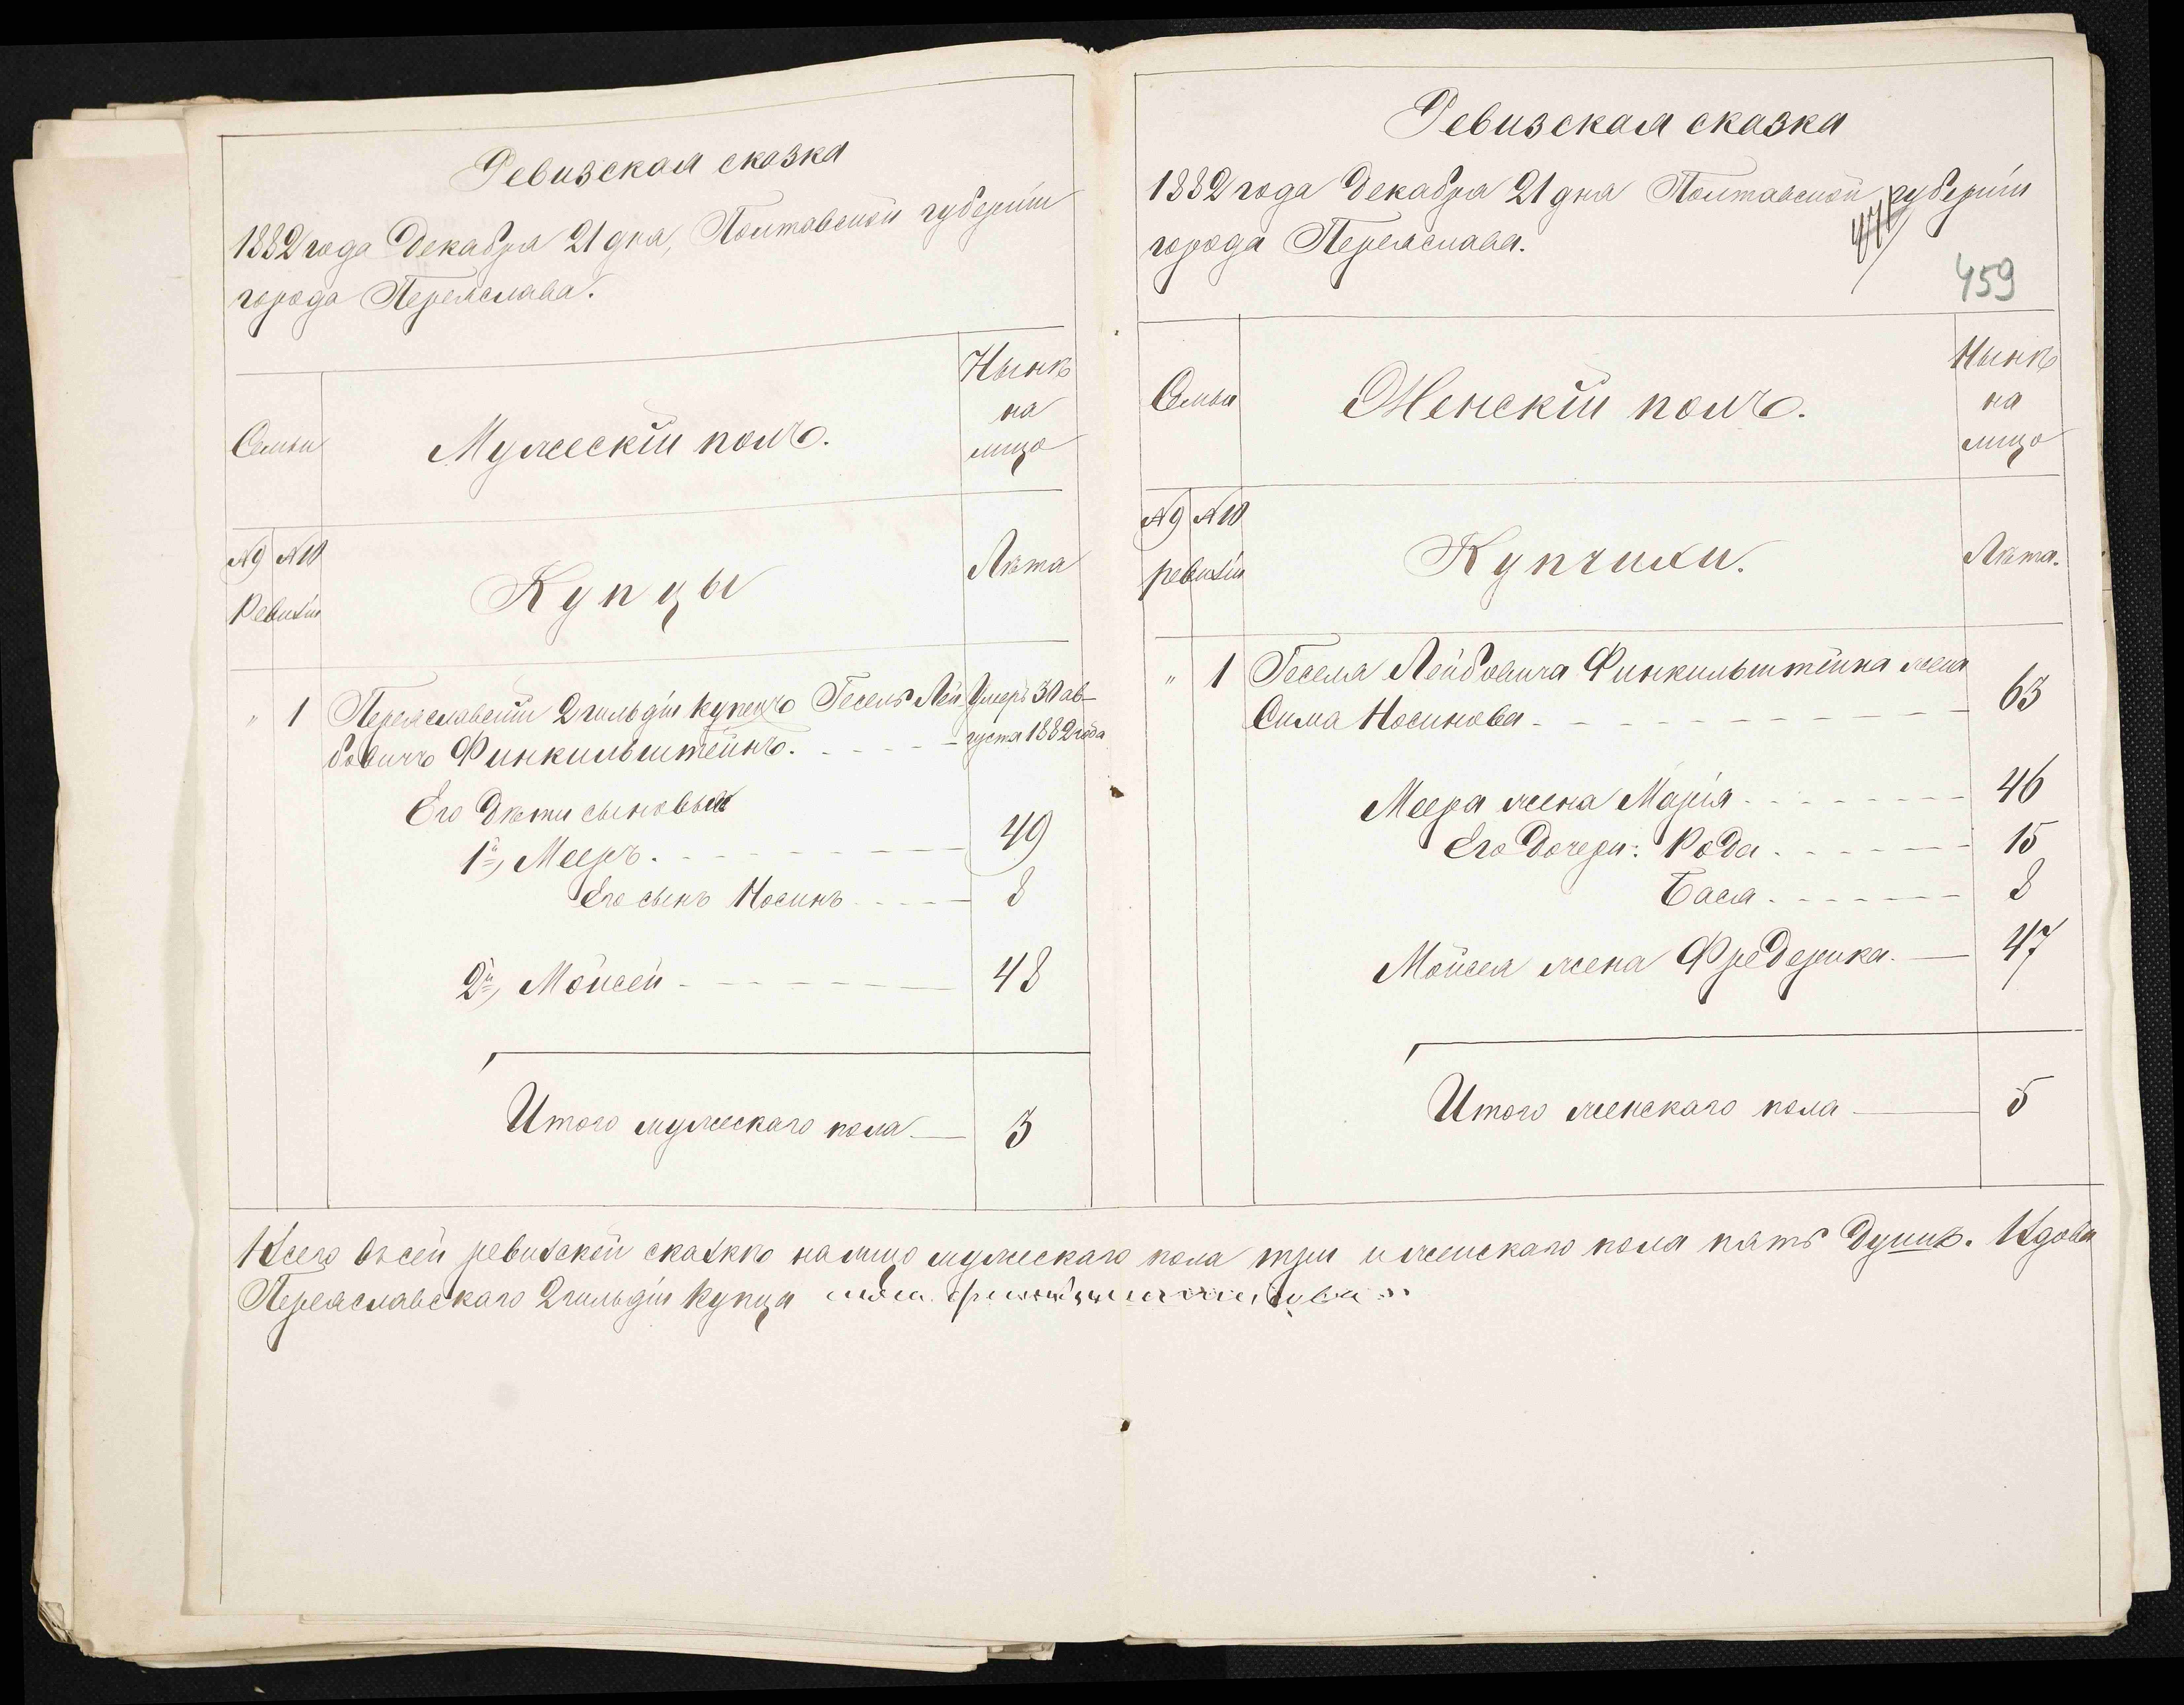 Ревизская сказка
1882 года Декабря 21 дня, Полтавской губерніи
города Переяслава.
Семьи
Мужескій полъ.
Нынѣ
на
лицо
№ 9 № 10
Ревизіи
Купцы
Лѣта
" 1 Переяславскій 2 гильдіи купецъ Гесель Лей
бовичъ Финкильштейнъ.
Умеръ 30 ав-
густа 1882 года
Его Дѣти сыновья
1й, Мееръ. 49
Его сынъ Носинъ 8
2й, Мойсей 48
Итого мужескаго пола 3
Ревизская сказка
1882 года Декабря 21 дня Полтавской губерніи
города Переяслава.
459
Семьи
Женскій полъ.
Нынѣ
на
лицо
№ 9 № 10
ревизіи
Купчихи.
Лѣта.
" 1 Геселя Лейбовича Финкильштейна жена
Сима Носинова 63
Меера жена Марія 46
Его Дочери: Рода 15
Бася 8
Мойсея жена Фредерика. 47
Итого женскаго пола 5
Всего въ сей ревизской сказкѣ на лицо мужескаго пола три и женскаго пола пять Душъ. Вдова
Переяславскаго 2 гильдіи купца